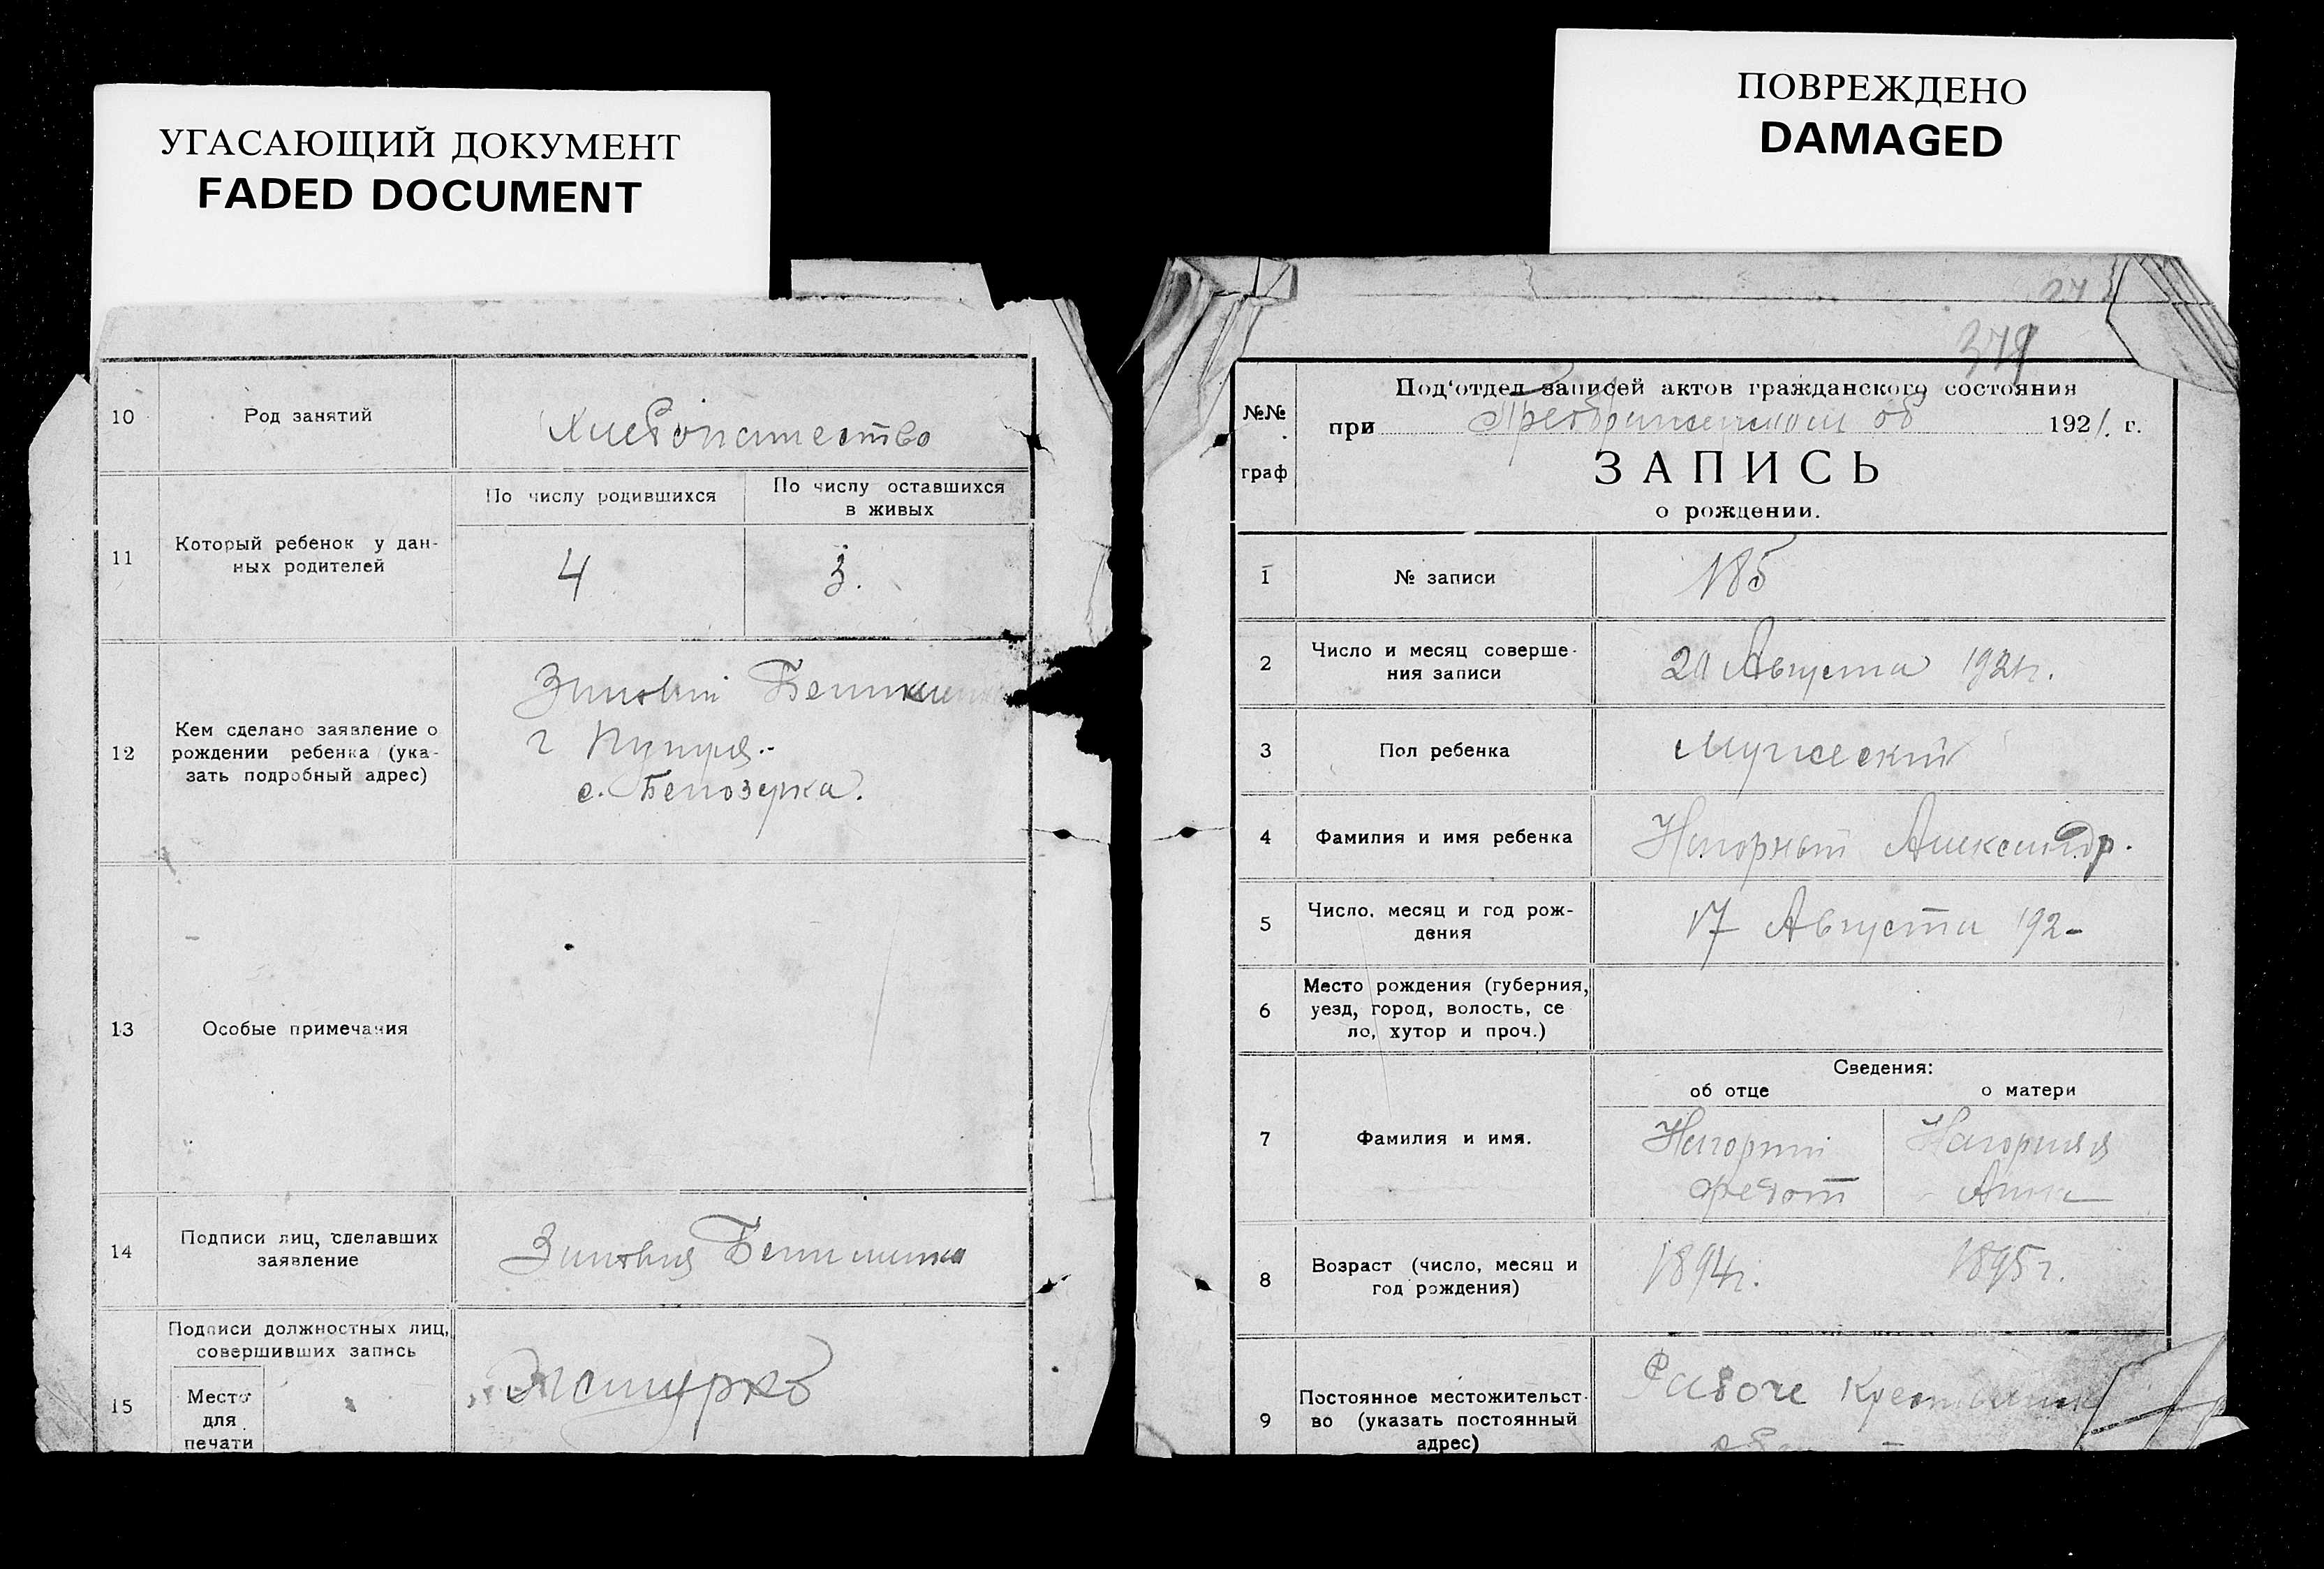 УГАСАЮЩИЙ ДОКУМЕНТ
FADED DOCUMENT
10
Род занятий
11
Который ребенок у дан-
ных родителей
По числу родившихся
По числу оставшихся
в живых
4
3.
12
Кем сделано заявление о
рождении ребенка (ука-
зать подробный адрес)
с. Белозерка.
13
Особые примечания
14
Подписи лиц, сделавших
заявление
15
Подписи должностных лиц,
совершивших запись
Место
для
печати
ПОВРЕЖДЕНО
DAMAGED
379
№№
граф
Под‘отдел записей актов гражданского состояния
при 1921. г.
ЗАПИСЬ
о рождении.
1
№ записи
185
2
Число и месяц соверше-
ния записи
Августа 1921г.
3
Пол ребенка
Мужеский
4
Фамилия и имя ребенка
Нагорный Александр.
5
Число, месяц и год рож-
дения
17 Августа 192-
6
Место рождения (губерния,
уезд, город, волость, се
ло, хутор и проч.)
Сведения:
об отце
о матери
7
Фамилия и имя.
Нагорный
Федот
Нагорная
Анна
8
Возраст (число, месяц и
год рождения)
1894г.
1895г.
9
Постоянное местожительст-
во (указать постоянный
адрес)
Рабоче